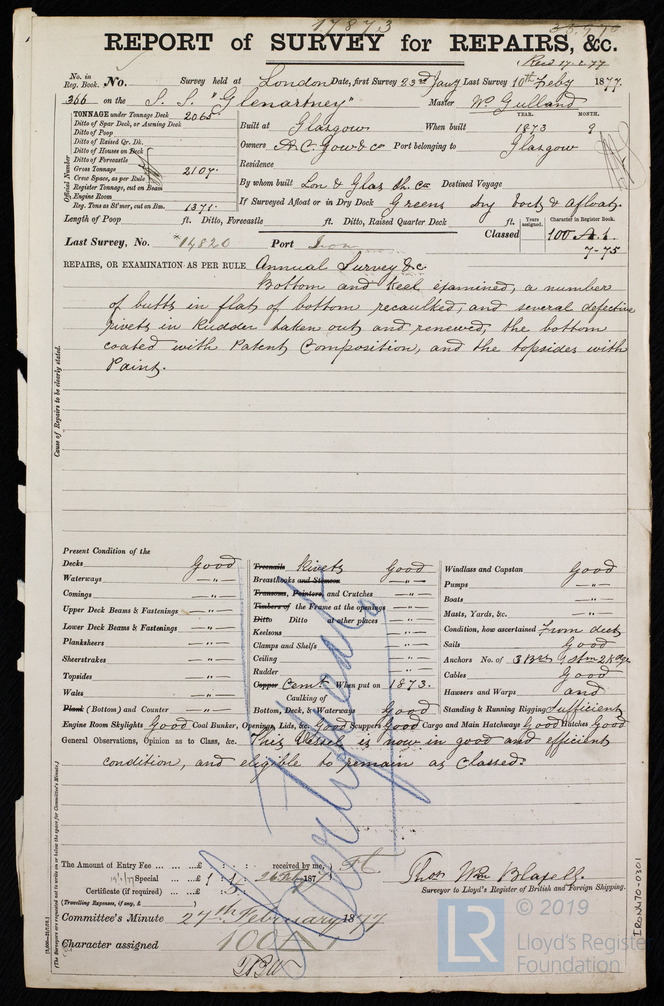 17873
REPORT of SURVEY for REPAIRS, &c.
Recd 17.2.77
No. in Reg. Book. No. Survey held at London Date, first Survey 23rd Jany Last Survey 10th Feby 1877.
366 on the S. S. "Glenartney" Master Wm Gulland
TONNAGE under Tonnage Deck 2065
Ditto of Spar Deck, or Awning Deck
Ditto of Poop
Ditto of Raised Qr. Dk.
Ditto of Houses on Deck
Ditto of Forecastle
Gross Tonnage 2107.
Crew Space, as per Rule
Register Tonnage, cut on Beam
Engine Room
Reg. Tons as St'mer, cut on Bm. 1371.
Official Number
YEAR. MONTH.
Built at Glasgow When built 1873 9
Owners A. C. Gow & Co Port belonging to Glasgow
Residence
By whom built Lon & Glas Destined Voyage
If Surveyed Afloat or in Dry Dock Greens Dry Dock & Afloat.
Length of Poop ft. Ditto, Forecastle ft. Ditto, Raised Quarter Deck ft.
Years assigned. Character in Register Book.
Last Survey, No. *14820 Port Iron Classed 100 A.1.
7-75
REPAIRS, OR EXAMINATION AS PER RULE Annual Survey &c.
Bottom and Keel examined, a number
of butts in flat of bottom recaulked, and several defective
rivets in Rudder taken out and renewed, the bottom
coated with Patent Composition, and the topsides with
Paint.
Cause of Repairs to be clearly stated.
Present Condition of the
Decks Good
Waterways -"-
Comings -"-
Upper Deck Beams & Fastenings -"-
Lower Deck Beams & Fastenings -"-
Planksheers -"-
Sheerstrakes -"-
Topsides -"-
Wales -"-
Plank (Bottom) and Counter -"-
Treenails Rivets Good
Breasthooks and Stemson -"-
Transoms, Pointers, and Crutches -"-
Timbers of the Frame at the openings -"-
Ditto Ditto at other places -"-
Keelsons -"-
Clamps and Shelfs -"-
Ceiling -"-
Rudder -"-
Copper Cemt. When put on 1873.
Caulking of
Bottom, Deck, & Waterways Good
Windlass and Capstan Good
Pumps -"-
Boats -"-
Masts, Yards, &c. -"-
Condition, how ascertained From deck
Sails Good
Anchors No. of 3 Brs 1 Stm 2 Kdge
Cables Good
Hawsers and Warps and
Standing & Running Rigging Sufficient
Engine Room Skylights Good Coal Bunker, Openings, Lids, &c. Good Scuppers Good Cargo and Main Hatchways Good Hatches Good
General Observations, Opinion as to Class, &c. This Vessel is now in good and efficient
condition, and eligible to remain as Classed.
The Amount of Entry Fee ... £ : : received by me,
Special ... £ 1 : 187
Certificate (if required) ... £
(Travelling Expenses, if any, £ )
Thos Wm Blazell.
Surveyor to Lloyd's Register of British and Foreign Shipping.
Committee's Minute 27th February 1877
Character assigned 100A1
IRON470-0301
LR
© 2019
Lloyd's Register
Foundation